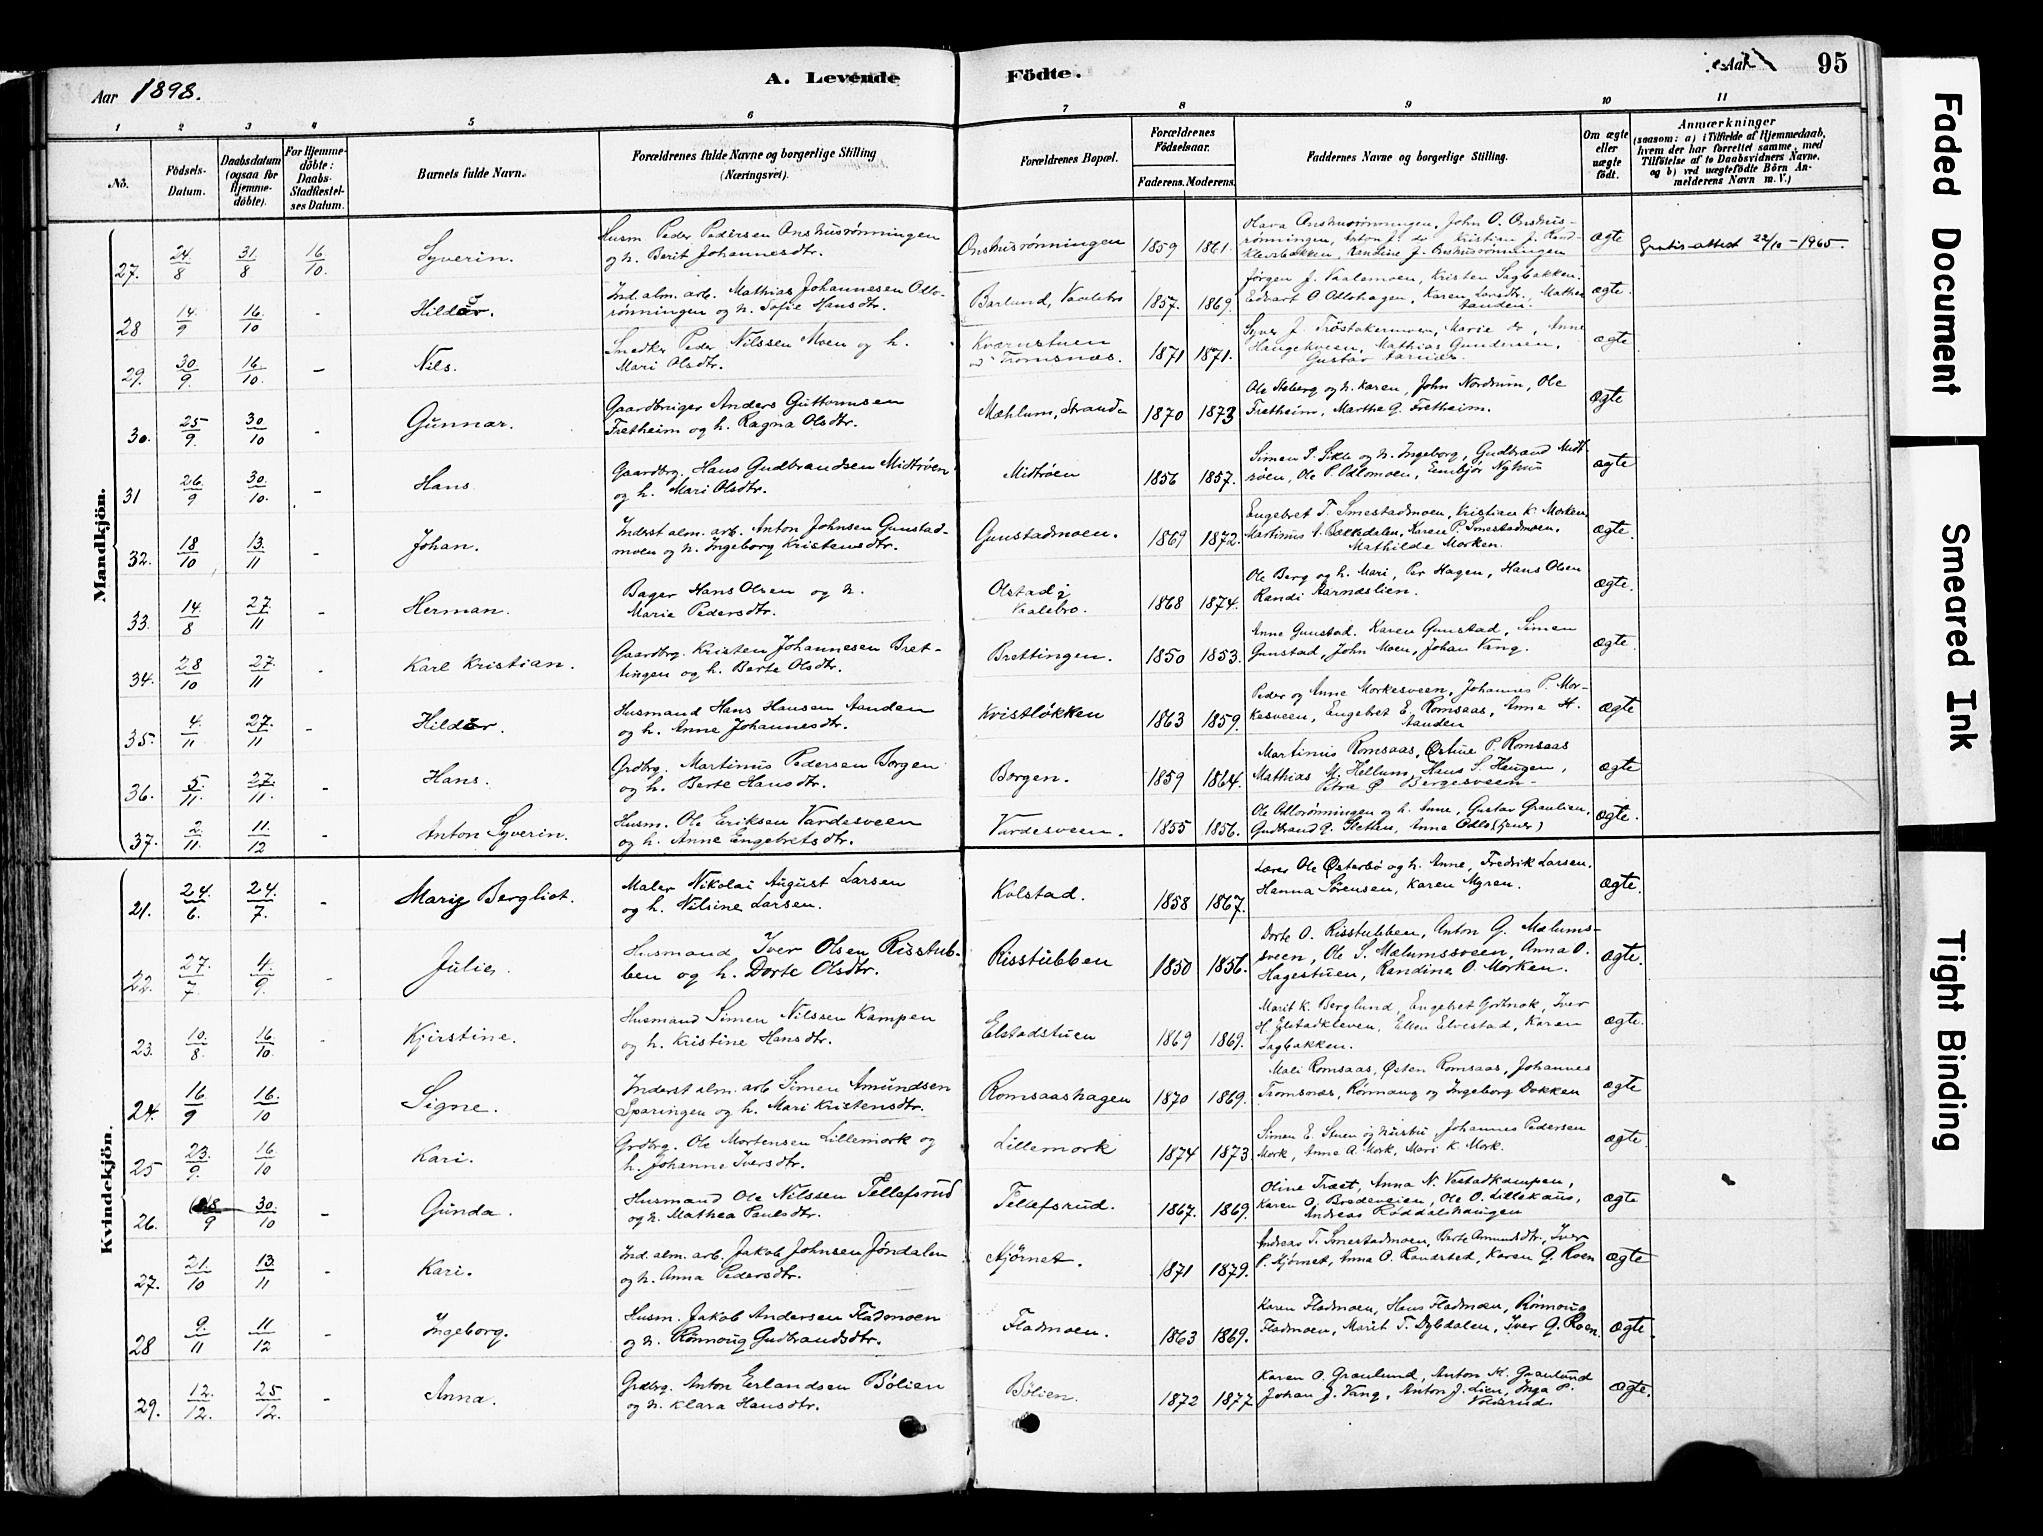 Aar 1898.
A. Levende Födte.
Aar
95
1 2 3 4 5 6 7 8 9 10 11
No.
Födsels-Datum.
Daabsdatum (ogsaa for Hjemme-döbte).
For Hjemme-döbte: Daabs-Stadfæstel-ses Datum.
Barnets fulde Navn.
Forældrenes fulde Navne og borgerlige Stilling (Næringsvei).
Forældrenes Bopæl.
Forældrenes Födselsaar.
Faderens. Moderens.
Faddernes Navne og borgerlige Stilling.
Om ægte eller uægte födt.
Anmærkninger
(saasom: a) i Tilfælde af Hjemmedaab, hvem der har forrettet samme, med Tilföielse af to Daabsvidners Navne, og b) ved uægtefödte Börn An-melderens Navn m. V.)
Mandkjön.
27. 24/8 31/8 16/10. Syverin. Husm. Peder Pedersen Onshusrønningen og h. Berit Johannesdtr. Onshusrønningen 1859 1861. Olava Onshusrønningen, John O. Onshus-rønningen, Anton J. do Kristian J. Onshusrønningen ægte Gratis attest 22/10-1965.
28 14/9 16/10 - Hildur. Ind. alm. arb. Mathias Johannesen Odlo-rønningen og h. Sofie Hansdtr. Barlund, Vaalebro 1857. 1869. Jørgen J. Vaalemoen, Kristen Sagbakken. Edvart O. Odlohagen, Karen Larsdtr., Mathea Aanden. ægte.
29. 30/9. 16/10. - Nils. Smedker Peder Nilssen Moen og h. Mari Olsdtr. Kværnstuen Tromsnæs. 1871 1871. Syver J. Trøstakermoen, Marie do, Anne Haugekveen, Mathias Gundersen, Gustav Aarnæs. ægte
30. 25/9. 30/10 - Gunnar. Gaardbruger Anders Guttormsen Fretheim og h. Ragna Olsdtr. Mæhlum, Stranden 1870 1873 Ole Steberg og h. Karen, John Nordrum, Ole Fretheim, Marthe G. Fretheim. ægte
31 26/9 30/10. - Hans. Gaardbrg. Hans Gudbrandsen Midtrøen og h. Mari Olsdtr. Midtrøen 1856 1857. Simen P. Sille og h. Ingeborg, Gudbrand Midt-røen, Ole P. Odlomoen, Embjør Nyhus ægte
32. 18/10 13./11 - Johan. Inderst alm. arb. Anton Johnsen Gunstad-moen og h. Ingeborg Kristensdtr. Gunstadmoen. 1869 1872. Engebret T. Smestadmoen, Kristian K. Morken, Martinus A. Bækkedalen, Karen P. Smestadmoen, Mathilde Morken. ægte.
33. 14./8 27/11 - Herman. Bager Hans Olsen og h. Marie Pedersdtr. Olstad i Vaalebro. 1868 1874. Ole Berg og h. Mari, Per Hagen, Hans Olsen Randi Aarnæslien. ægte.
34. 28/10 27./11 - Karl Kristian. Gaardbrg. Kristen Johannesen Bret-tingen og h. Berte Olsdtr. Brettingen. 1850 1853. Anne Gunstad. Karen Gunstad, Simen Gunstad, John Moen, Johan Vang. ægte.
35. 4./11 27./11 - Hildur. Husmand Hans Hansen Aanden og h. Anne Johannesdtr. Kvistløkken 1863 1859. Peder og Anne Morkesveen, Johannes P. Mor-kesveen, Engebret E. Romsaas, Anna H. Aanden ægte
36. 5/11. 27./11. - Hans. Grdbrg. Martinus Pedersen Borgen og h. Berte Hansdtr. Borgen. 1859 1864. Martinus Romsaas, Østine P. Romsaas Mathias M. Hellum, Hans S. Haugen, Petra P. Bergesveen ægte
37. 2/11. 11./12 - Anton Syverin. Husm. Ole Eriksen Vardesveen og h. Anne Engebretsdtr. Vardesveen. 1855 1856. Ole Odlorønningen og h. Anne, Gustav Graulien, Gudbrand P. Slethus, Anne Odlo (tjener) ægte.
Kvindekjön.
21. 24./6. 24./7. - Marie Bergliot. Maler Nikolai August Larsen og h. Nilsine Larsen. Kolstad. 1858 1867. Lærer Ole Østerbø og h. Anne, Fredrik Larsen. Hanna Sørensen, Karen Myren. ægte.
22. 27./7. 4./9. - Julie. Husmand Iver Olsen Risstub-ben og h. Dorte Olsdtr. Risstubben 1850 1856. Dorte O. Risstubben, Anton G. Mælums-sveen, Ole S. Mælumssveen, Anna O. Hagestuen, Randine O. Morken. ægte.
23. 10./8. 16./10. - Kjirstine. Husmand Simen Nilssen Kampen og h. Kristine Hansdtr. Elstadstuen 1869 1869. Marit K. Berglund, Engebret Gortnok, Iver H. Elstadkleven, Ellen Elvestad, Karen Sagbakken. ægte.
24. 16/9 16./10 - Signe. Inderst alm. arb. Simen Amundsen Sparingen og h. Mari Kristensdtr. Romsaashagen 1870 1869. Mali Romsaas, Østen Romsaas, Johannes Tromsnæs, Rønnaug og Ingeborg Dokken ægte
25 23./9. 16/10 - Kari. Grdbrg. Ole Mortensen Lillemork og h. Johanne Iversdtr. Lillemork 1874 1873 Simen E. Stuen og hustru, Johannes Pedersen Mork, Anne A. Mork, Mari K. Mork. ægte
26. 28/9 30./10 - Gunda. Husmand Ole Nilssen Tellefsrud og h. Mathea Paulsdtr. Tellefsrud. 1867. 1869. Oline Træet, Anna N. Vestadkampen, Karen A. Bredeveien, Ole O. Lillekaus, Andreas Røddalshaugen ægte
27. 21./10 13./11 - Kari. Ind. alm. arb. Jakob Johnsen Jøndalen og h. Anna Pedersdtr. Kjørnet. 1871 1879. Andreas T. Smestadmoen, Berte Amundsdtr., Iver P. Kjørnet, Anna O. Randsted, Karen G. Roen ægte
28 9./11 11/12 - Ingeborg. Husm. Jakob Andersen Fladmoen og h. Rønnoug Gudbrandsdtr. Fladmoen. 1863 1869. Karen Fladmoen, Hans Fladmoen, Rønnoug Fladmoen, Marit T. Dybdalen, Iver G. Roen. ægte.
29. 12./12. 25/12. - Anna. Grdbrg. Anton Erlandsen Bølien og h. Klara Hansdtr. Bølien. 1872 1877 Karen O. Graulund, Anton M. Graulund Johan J. Vang, Anton J. Lien, Inga P. Voldsrud. ægte.
Faded Document
Smeared Ink
Tight Binding